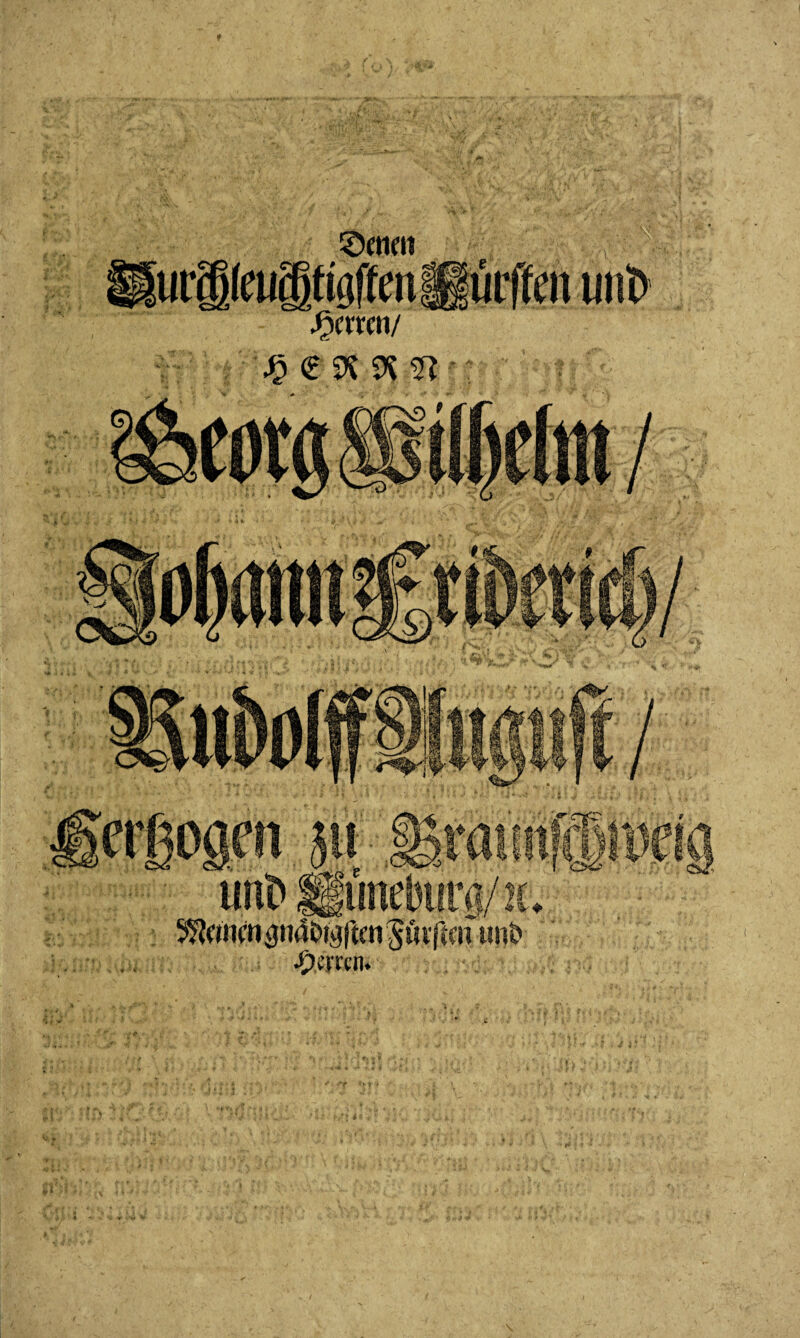 (o)
Denen
Durchleuchtigsten Fürsten und
Herren/
HERRN
Georg Wilhelm/
Johann Friderich/
Rudolff August/
Hertzogen zu Braunschweig
und Lüneburg/ ꝛc.
Meinen gnädigsten Fürsten und
Herren.